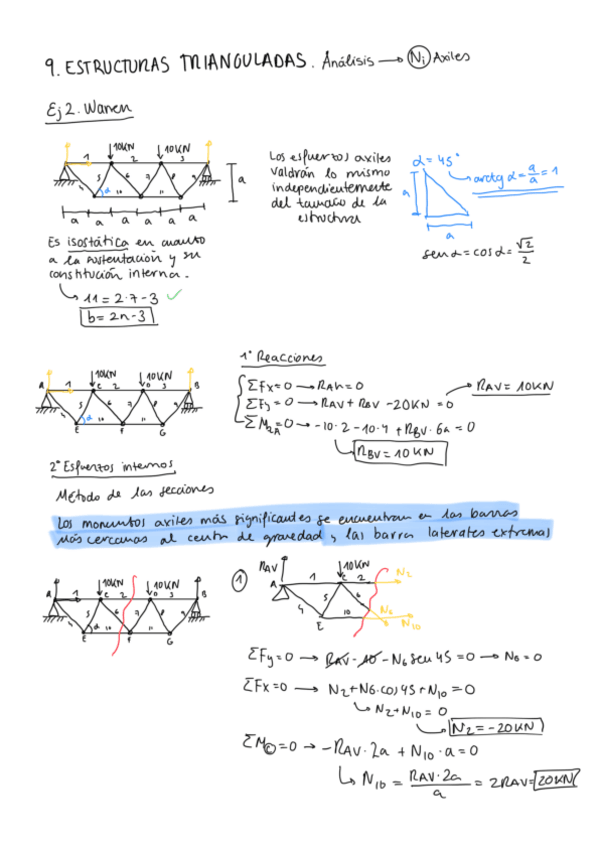 9. ESTRUCTURAS TRIANGULADAS. Análisis → Ni Axiles
Ej 2. Warren
10KN 10KN
1 2 3
4 5 α 6 7 8 9
10 11
a
a a a a a a
Los esfuerzos axiles
valdrán lo mismo
independientemente
del tamaño de la
estructura
α = 45°
arctg α = a/a = 1
a
a
sen α = cos α = √2/2
Es isostática en cuanto
a la sustentación y su
constitución interna.
↳ 11 = 2·7 - 3 ✓
b = 2n - 3
1° Reacciones
ΣFx = 0 → RAH = 0
ΣFy = 0 → RAV + RBV - 20KN = 0 → RAV = 10KN
ΣM A = 0 → -10·2 - 10·4 + RBV·6a = 0
↳ RBV = 10 KN
10KN 10KN
A 1 C 2 D 3 B
4 5 α 6 7 8 9
E 10 F 11 G
2° Esfuerzos internos
Método de las secciones
Los momentos axiles más significantes se encuentran en las barras
más cercanas al centro de gravedad y las barra laterales extremas
10KN 10KN
A 1 C 2 D 3 B
4 5 α 6 7 8 9
E 10 F 11 G
1
RAV 10KN
A 1 C 2 N2
4 5 6
E 10 N6
N10
ΣFy = 0 → RAV - 10 - N6 sen 45 = 0 → N6 = 0
ΣFx = 0 → N2 + N6·cos 45 + N10 = 0
↳ N2 + N10 = 0
↳ N2 = -20 KN
ΣM C = 0 → -RAV·2a + N10·a = 0
↳ N10 = RAV·2a/a = 2RAV = 20KN